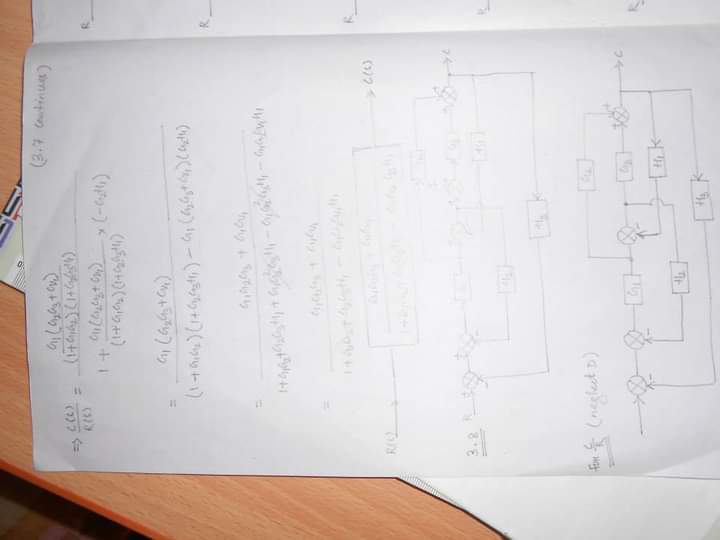 (3.7 continues)
⇒ C(s)/R(s) = [G1(G2G3+G4) / (1+G1G2)(1+G2G3H1)] / [1 + G1(G2G3+G4) / (1+G1G2)(1+G2G3H1) × (-G2H1)]
= G1(G2G3+G4) / [(1+G1G2)(1+G2G3H1) - G1(G2G3+G4)(G2H1)]
= [G1G2G3 + G1G4] / [1+G1G2+G2G3H1 + G1G2²G3H1 - G1G2²G3H1 - G1G2G4H1]
= [G1G2G3 + G1G4] / [1+G1G2+G2G3H1 - G1G2G4H1]
R(s) C(s)
3.8 R C
H1
H2
H3
For C/R (neglect D)
G2
G1 G3 C
H1
H2
H3
R
R
R
R
R